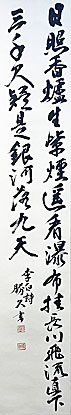 日照香爐生紫煙遥看瀑布挂長川飛流直下
三千尺疑是銀河落九天
李白詩